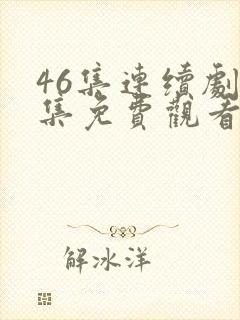 46集連續劇
集免費觀看
解冰洋